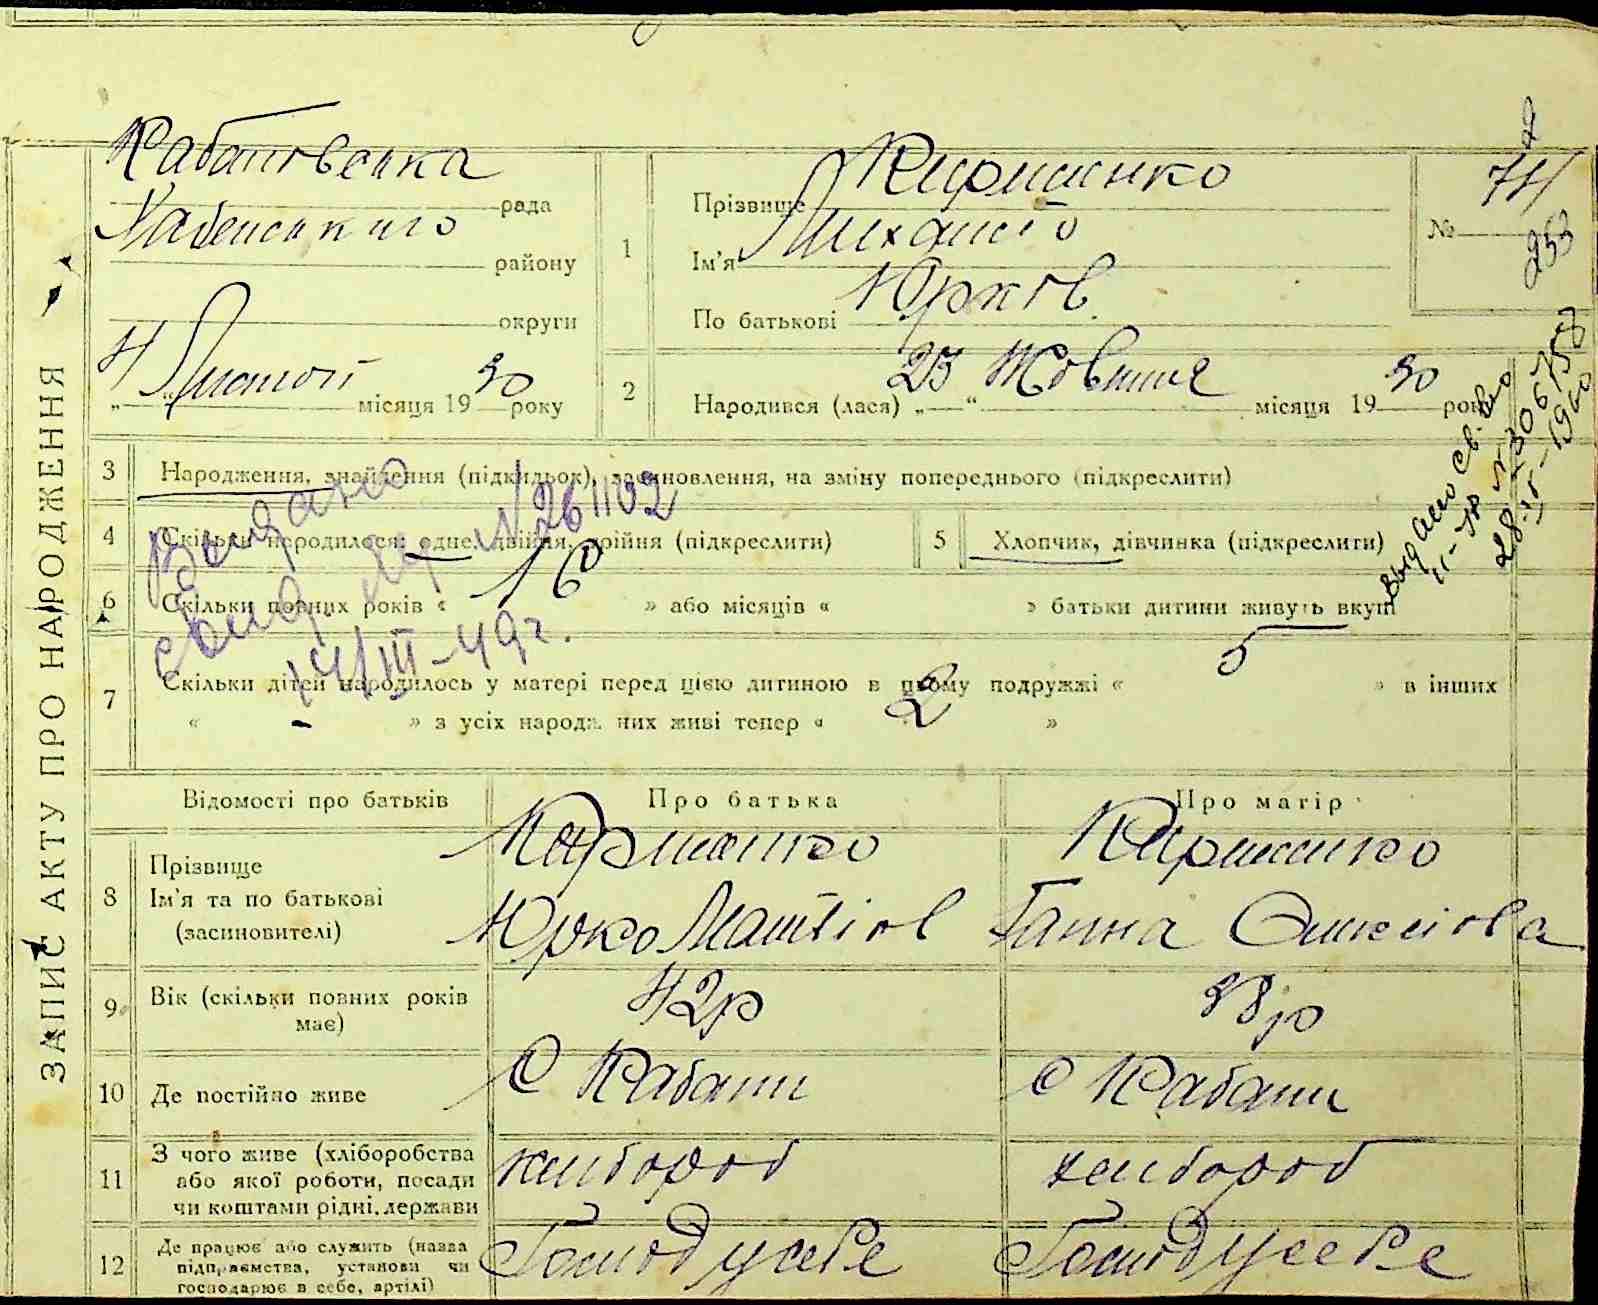 ЗАПИС АКТУ ПРО НАРОДЖЕННЯ
Кабанівська
рада
Хабенського
району
округи
„4“ Листоп місяця 1930 року
1
Прізвище Кирменко
Ім'я Михайло
По батькові Юрків
№ 74
253
2
Народився (лася) „23“ Жовтня місяця 1930 року
3 Народження, знайдення (підкидьок), засиновлення, на зміну попереднього (підкреслити)
4 Скільки народилося: одне, двійня, трійня (підкреслити)
5 Хлопчик, дівчинка (підкреслити)
6 Скільки повних років « 16 » або місяців « » батьки дитини живуть вкупі
7 Скільки дітей народилось у матері перед цією дитиною в цьому подружжі « 5 » в інших
« - » з усіх народжених живі тепер « 2 »
Выдано
свид. № 261102
14/III-49г.
Выдано св. во
II-ЯЯ № 306758
28-IV-1960
Відомості про батьків Про батька Про матір
8 Прізвище
Ім'я та по батькові
(засиновителі)
Кирменко Кирменко
Юрко Матвіїв Ганна
9 Вік (скільки повних років має) 42р 38р
10 Де постійно живе с Кабани с Кабани
11 З чого живе (хліборобства або якої роботи, посади чи коштами рідні, держави
хлібороб хлібороб
12 Де працює або служить (назва підприємства, установи чи господарює в себе, артілі)
Господ у себе Господ у себе